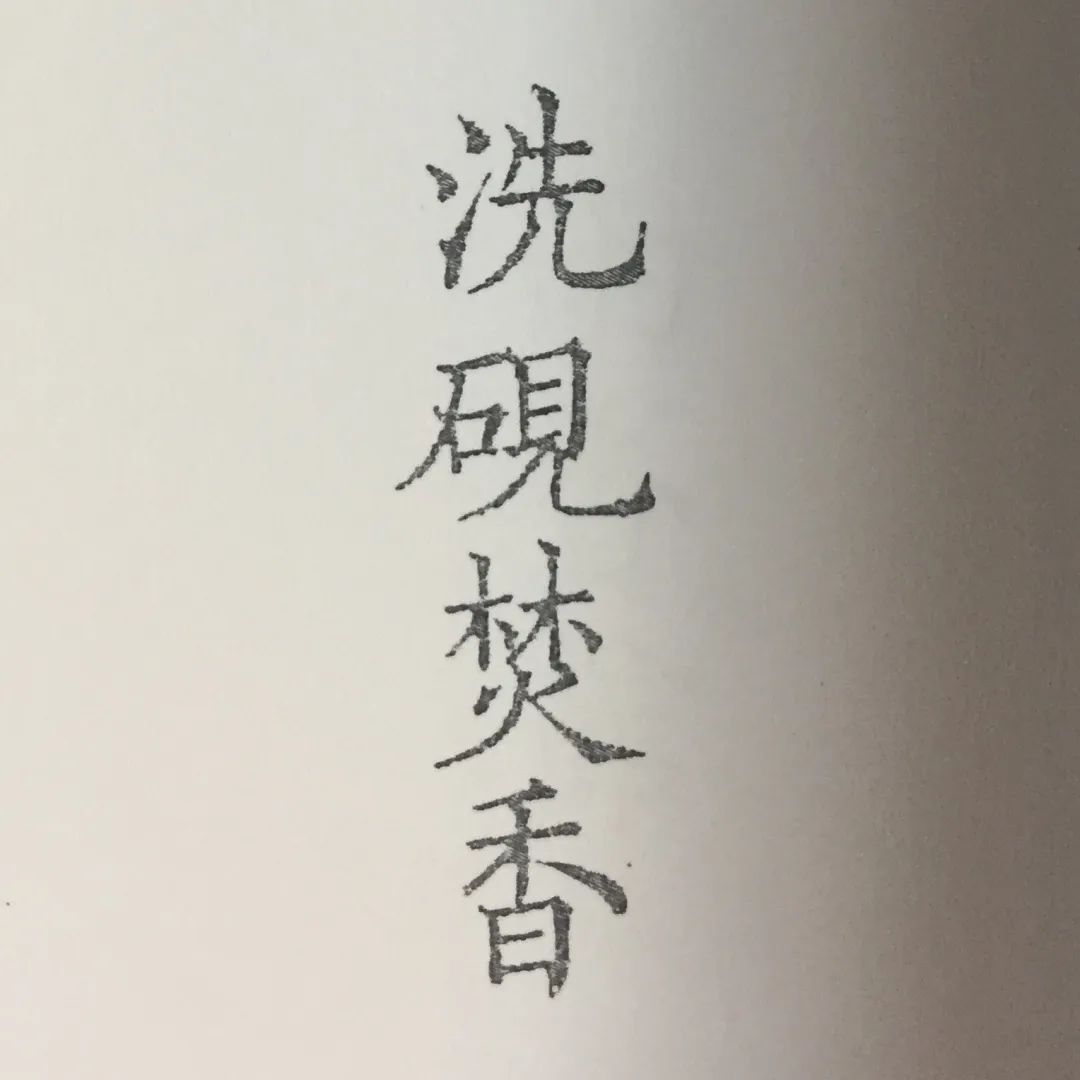 洗硯焚香